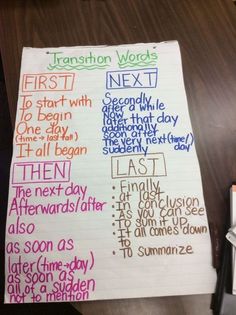 Transition Words
FIRST
To start with
To begin
One day
(time → last fall)
It all began
NEXT
Secondly
after a while
Now
later that day
additionally
soon after
The very next (time/day)
suddenly
THEN
The next day
Afterwards/after
also
as soon as
later (time→day)
as soon as
all of a sudden
not to mention
LAST
• Finally
• at last
• In conclusion
• As you can see
• To sum it up
• It all comes down
to
• To summarize